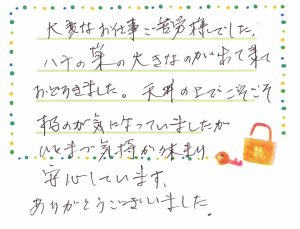 大変なお仕事ご苦労様でした。
ハチの巣の大きなのが出て来て
おどろきました。天井の上でごそごそ
するのが気になっていましたが
ひとまず気持が休まり
安心しています。
ありがとうございました。